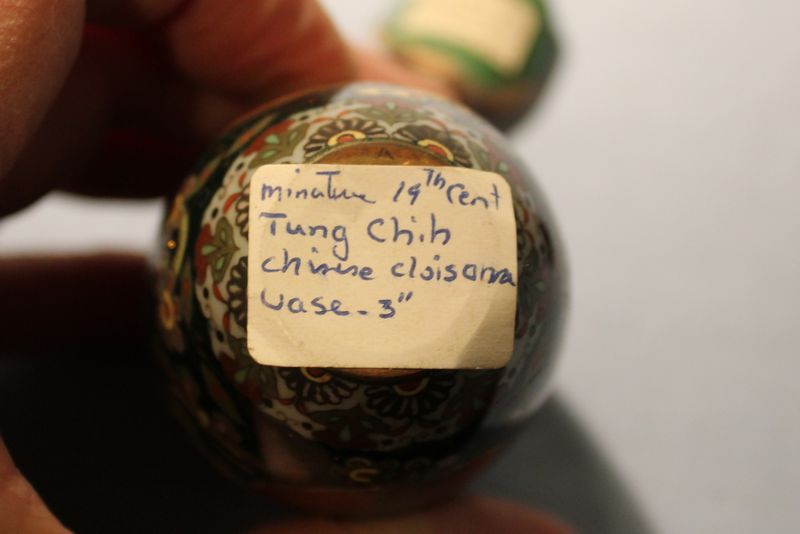 minature 19Th Cent
Tung Chih
chinese cloisonna
Vase - 3"